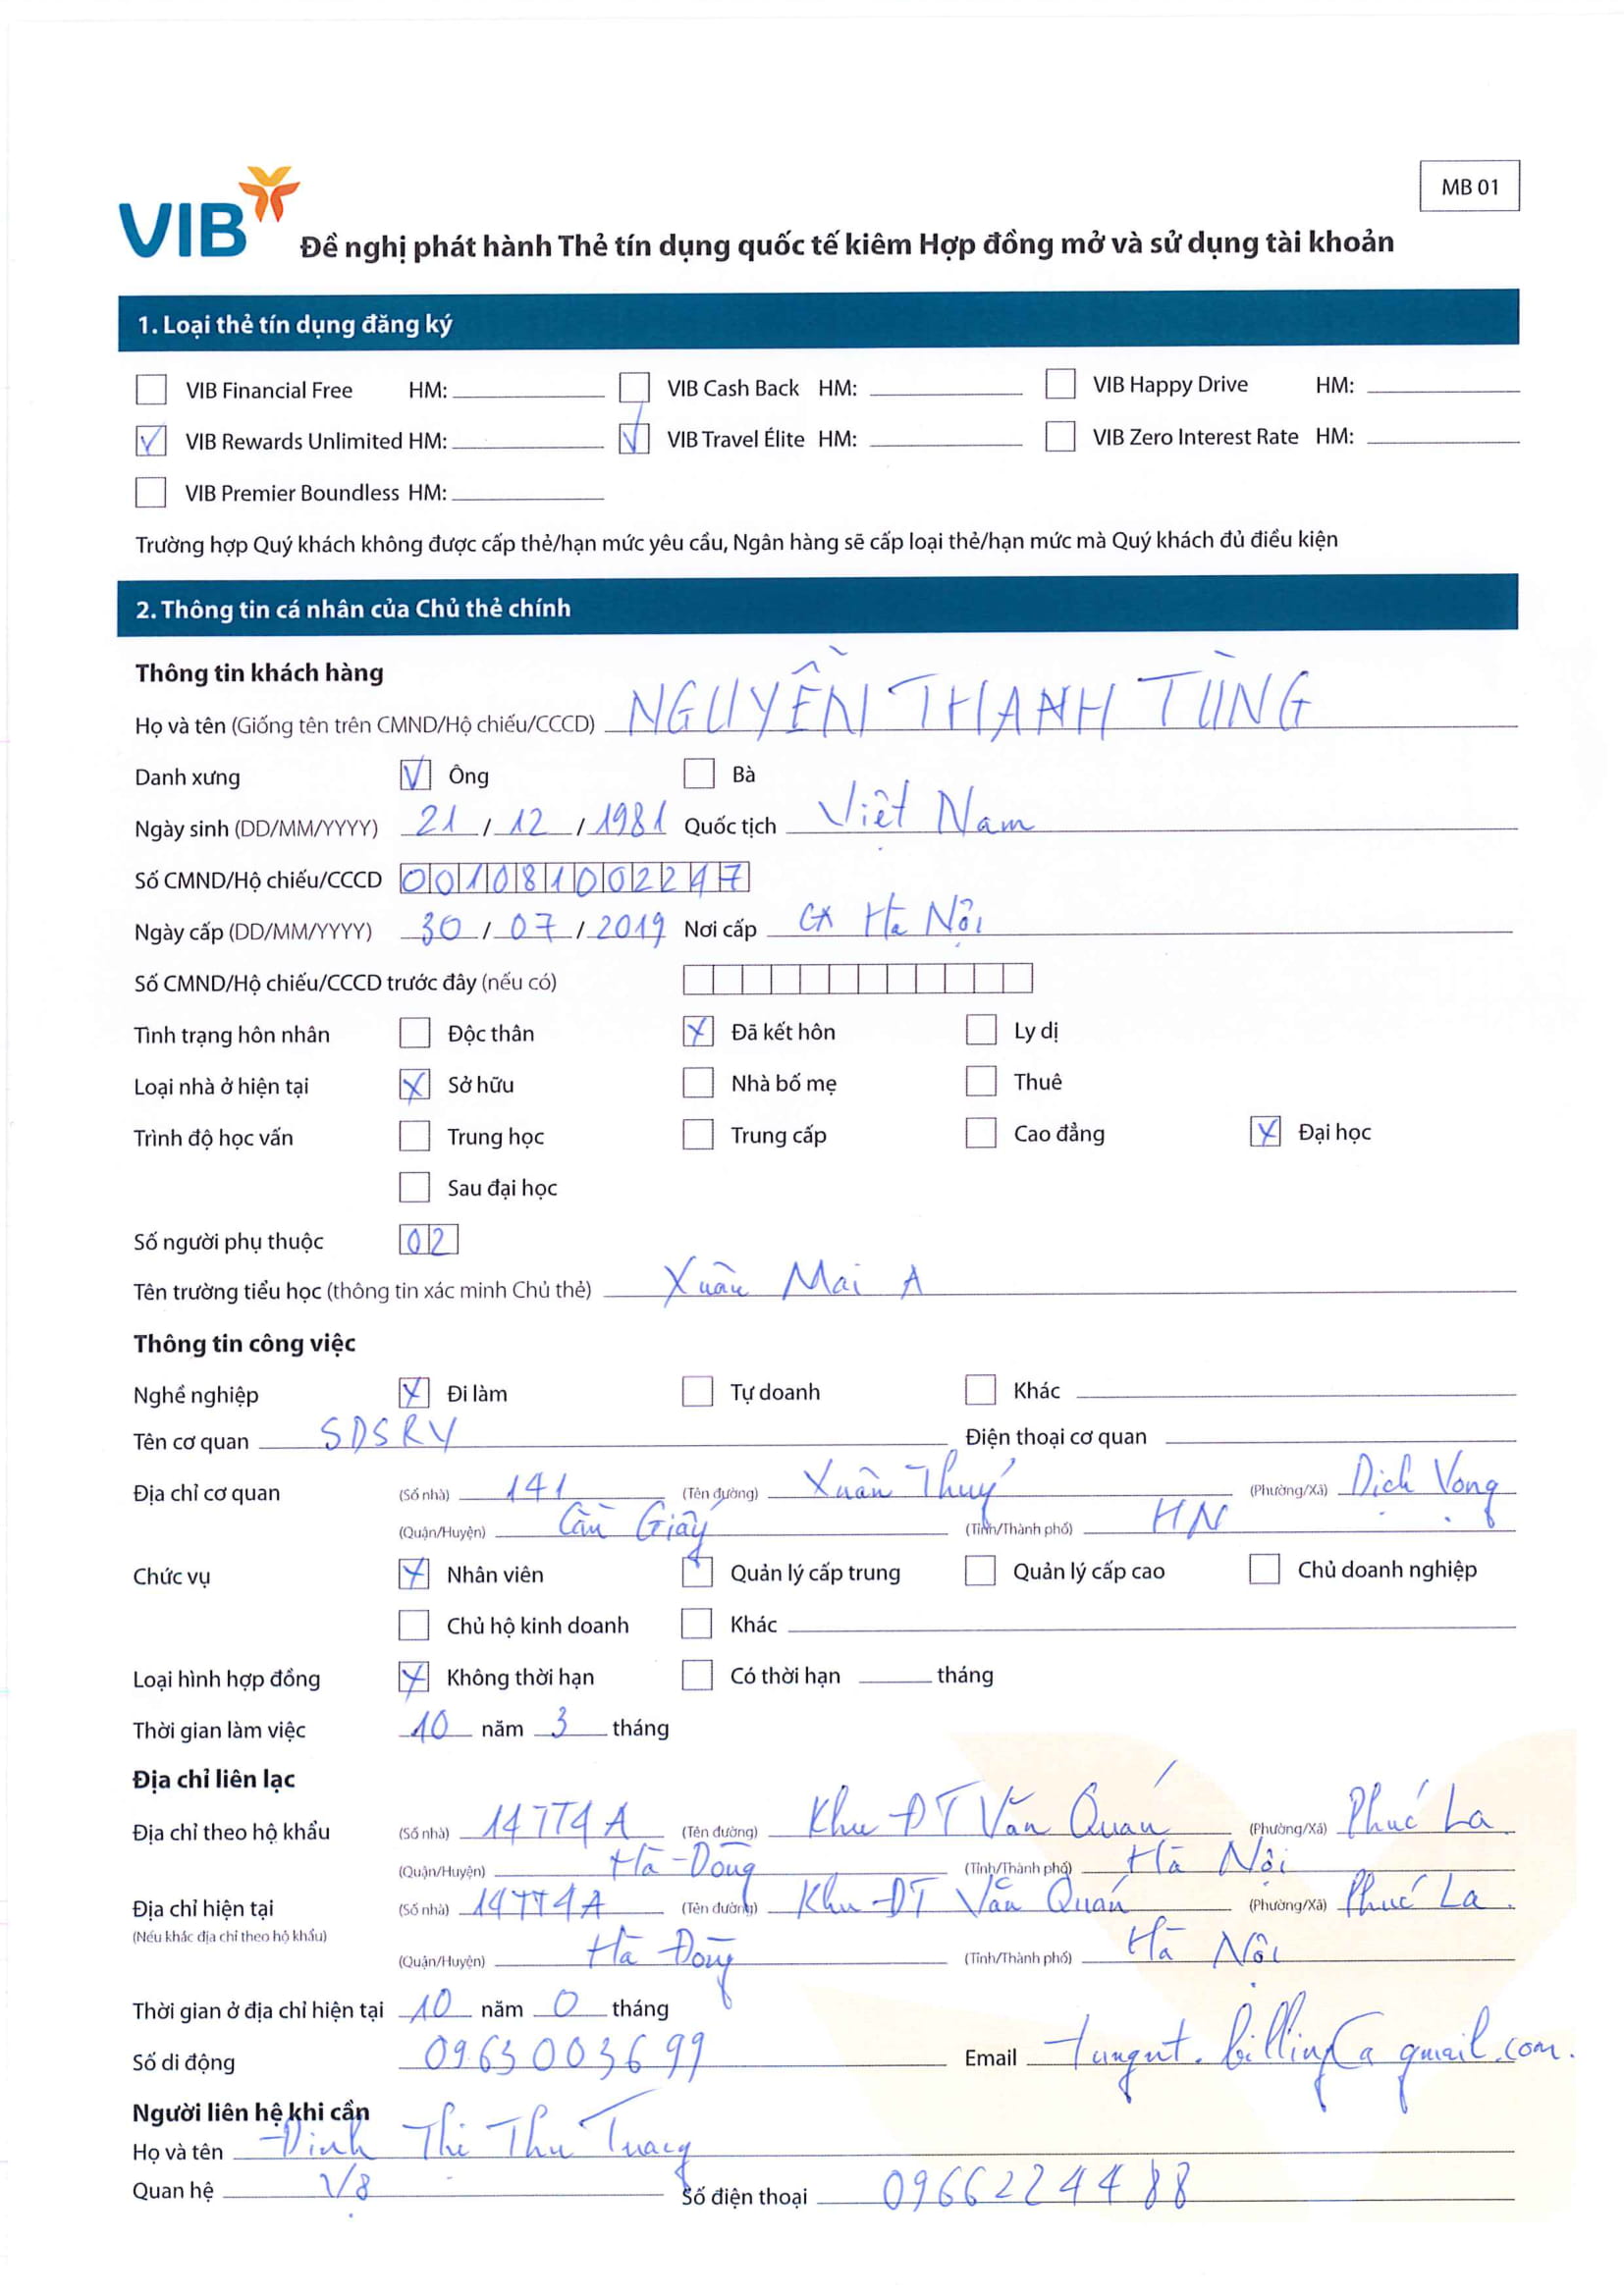 MB 01
VIB
Đề nghị phát hành Thẻ tín dụng quốc tế kiêm Hợp đồng mở và sử dụng tài khoản
1. Loại thẻ tín dụng đăng ký
VIB Financial Free HM: VIB Cash Back HM: VIB Happy Drive HM:
VIB Rewards Unlimited HM: VIB Travel Élite HM: VIB Zero Interest Rate HM:
VIB Premier Boundless HM:
Trường hợp Quý khách không được cấp thẻ/hạn mức yêu cầu, Ngân hàng sẽ cấp loại thẻ/hạn mức mà Quý khách đủ điều kiện
2. Thông tin cá nhân của Chủ thẻ chính
Thông tin khách hàng
Họ và tên (Giống tên trên CMND/Hộ chiếu/CCCD) NGUYỄN THANH TÙNG
Danh xưng Ông Bà
Ngày sinh (DD/MM/YYYY) 21 / 12 / 1981 Quốc tịch Việt Nam
Số CMND/Hộ chiếu/CCCD 001081002247
Ngày cấp (DD/MM/YYYY) 30 / 07 / 2019 Nơi cấp CA Hà Nội
Số CMND/Hộ chiếu/CCCD trước đây (nếu có)
Tình trạng hôn nhân Độc thân Đã kết hôn Ly dị
Loại nhà ở hiện tại Sở hữu Nhà bố mẹ Thuê
Trình độ học vấn Trung học Trung cấp Cao đẳng Đại học
Sau đại học
Số người phụ thuộc 02
Tên trường tiểu học (thông tin xác minh Chủ thẻ) Xuân Mai A
Thông tin công việc
Nghề nghiệp Đi làm Tự doanh Khác
Tên cơ quan SDSRV Điện thoại cơ quan
Địa chỉ cơ quan (Số nhà) 141 (Tên đường) Xuân Thuỷ (Phường/Xã) Dịch Vọng
(Quận/Huyện) Cầu Giấy (Tỉnh/Thành phố) HN
Chức vụ Nhân viên Quản lý cấp trung Quản lý cấp cao Chủ doanh nghiệp
Chủ hộ kinh doanh Khác
Loại hình hợp đồng Không thời hạn Có thời hạn tháng
Thời gian làm việc 10 năm 3 tháng
Địa chỉ liên lạc
Địa chỉ theo hộ khẩu (Số nhà) 14TT4A (Tên đường) Khu ĐT Văn Quán (Phường/Xã) Phúc La
(Quận/Huyện) Hà Đông (Tỉnh/Thành phố) Hà Nội
Địa chỉ hiện tại (Số nhà) 14TT4A (Tên đường) Khu ĐT Văn Quán (Phường/Xã) Phúc La.
(Nếu khác địa chỉ theo hộ khẩu)
(Quận/Huyện) Hà Đông (Tỉnh/Thành phố) Hà Nội
Thời gian ở địa chỉ hiện tại 10 năm 0 tháng
Số di động 0963003699 Email tungnt.billing@gmail.com.
Người liên hệ khi cần
Họ và tên Đinh Thị Thu Trang
Quan hệ Vợ Số điện thoại 0966224488